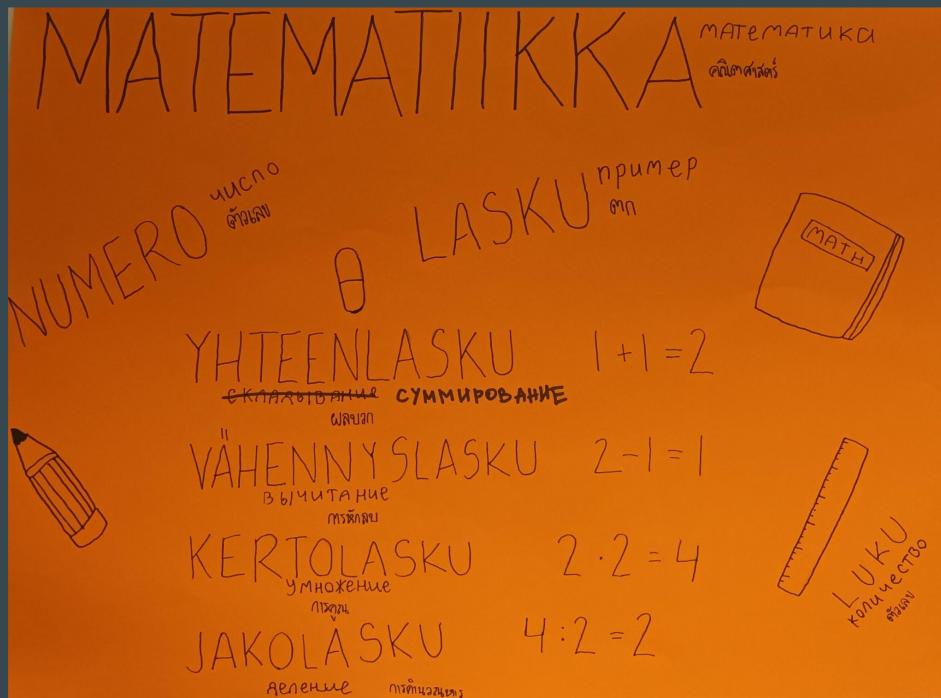 MATEMATIIKKA
математика
คณิตศาสตร์
NUMERO
число
ตัวเลข
LASKU
пример
MATH
YHTEENLASKU 1+1=2
складывание СУММИРОВАНИЕ
ผลบวก
VÄHENNYSLASKU 2-1=1
вычитание
การหักลบ
KERTOLASKU 2·2=4
умножение
การคูณ
JAKOLASKU 4:2=2
деление
LUKU
количество
ตัวเลข